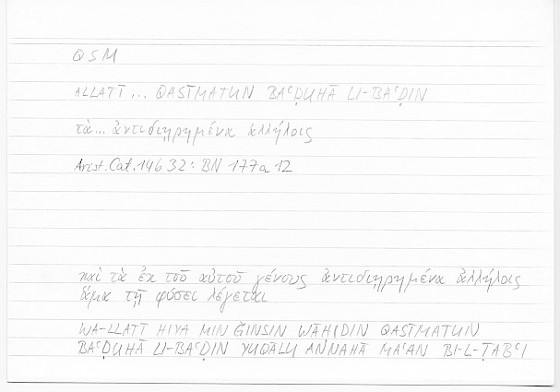 QSM
ALLATĪ... QASĪMATUN BAʿḌUHĀ LI-BAʿḌIN
τὰ... ἀντιδιῃρημένα ἀλλήλοις
Arist. Cat. 14b 32 : BN 177a 12
καὶ τὰ ἐκ τοῦ αὐτοῦ γένους ἀντιδιῃρημένα ἀλλήλοις
ἅμα τῇ φύσει λέγεται
WA-LLATĪ HIYA MIN ǦINSIN WĀḤIDIN QASĪMATUN
BAʿḌUHĀ LI-BAʿḌIN YUQĀLU ANNAHĀ MAʿAN BI-L-ṬABʿI